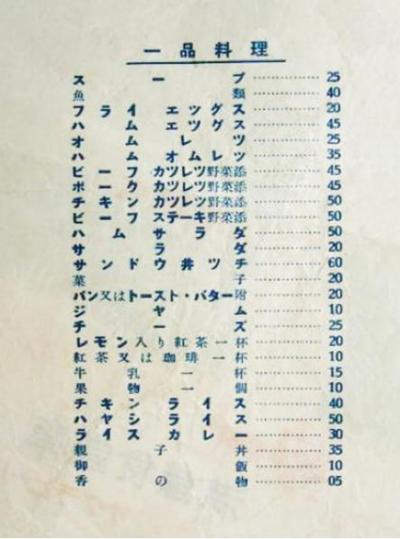 一品料理
スープ……………25
魚類……………40
フライエツグス……………20
ハムエツグス……………45
オムレツ……………25
ハムオムレツ……………35
ビーフカツレツ野菜添……………45
ポークカツレツ野菜添……………45
チキンカツレツ野菜添……………50
ビーフステーキ野菜添……………50
ハムサラダ……………50
サラダ……………20
サンドウ井ツチ……………60
菓子……………20
パン又はトースト・バター附……………20
ジヤム……………10
チーズ……………25
レモン入り紅茶一杯……………20
紅茶又は珈琲一杯……………10
牛乳一杯……………15
果物一個……………10
チキンライス……………40
ハヤシライス……………50
ライスカレー……………30
親子丼……………35
御飯……………10
香の物……………05